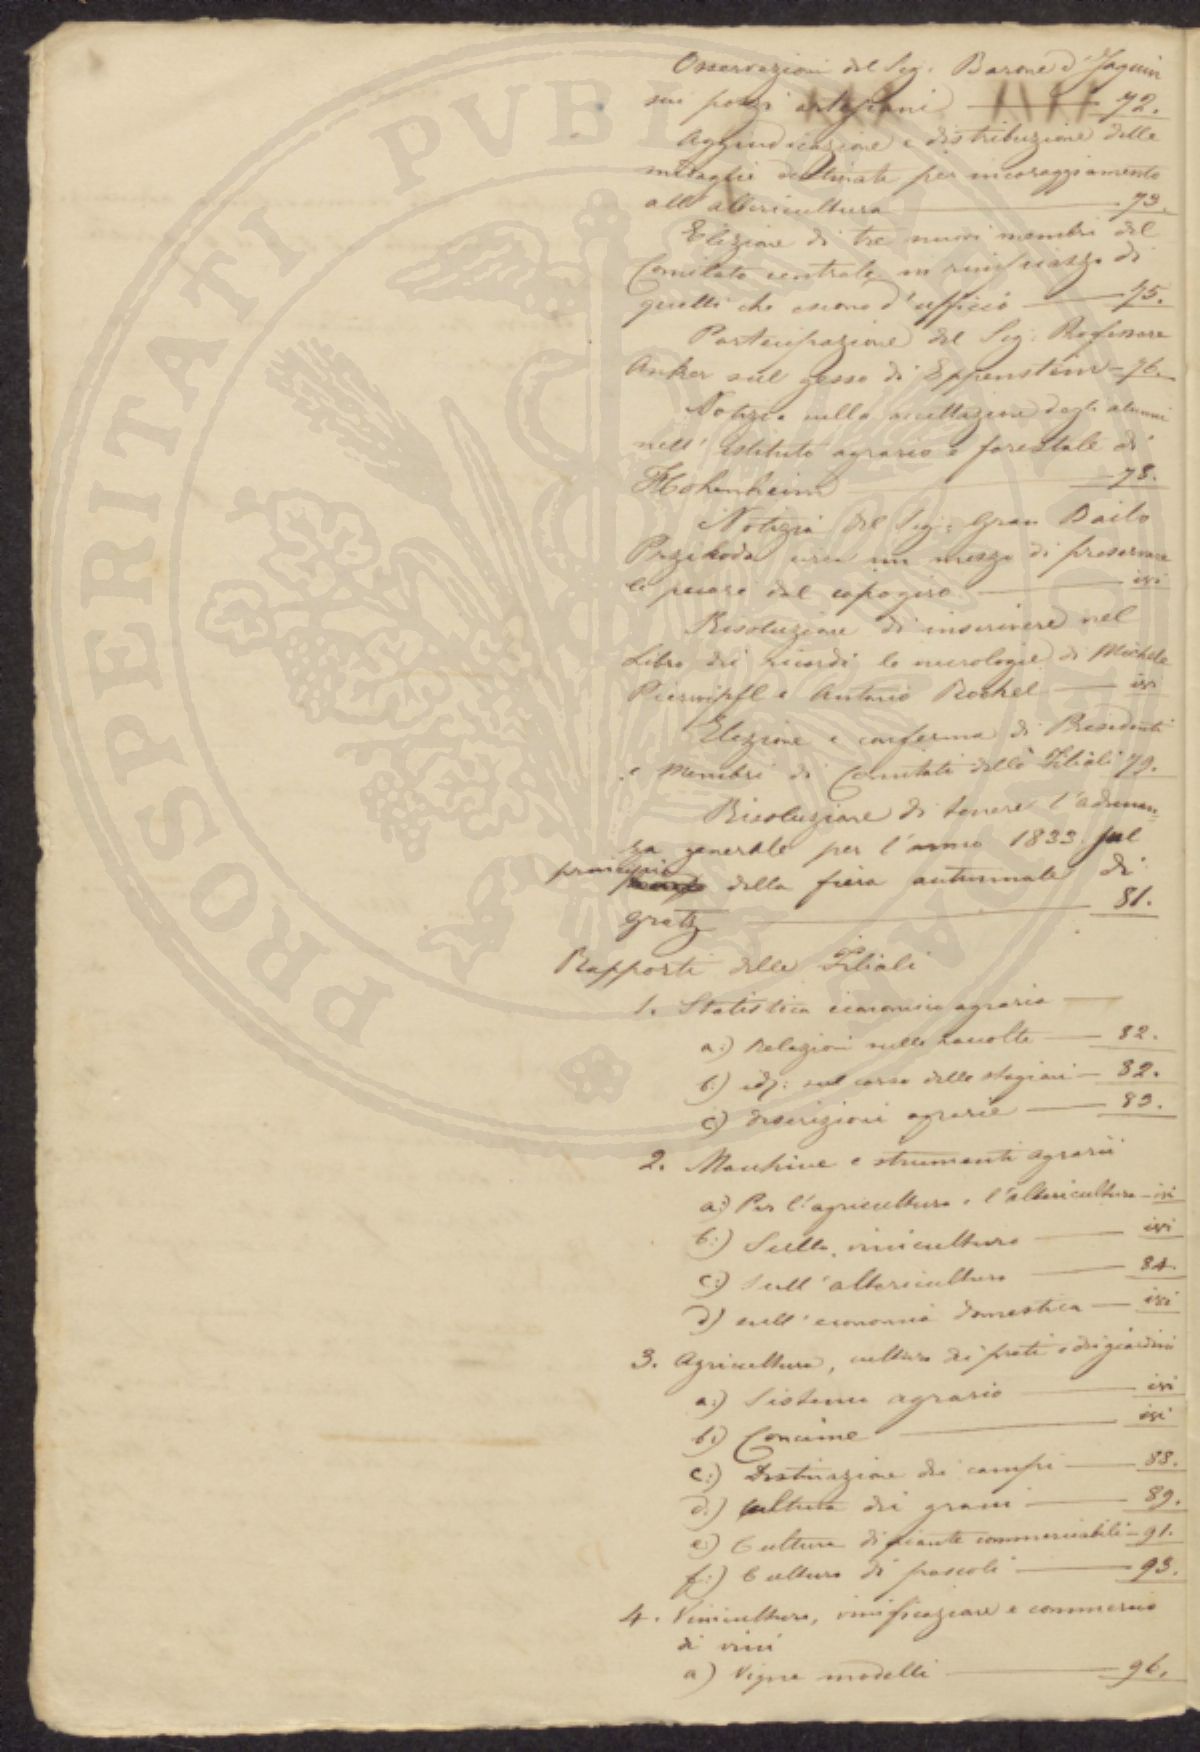 Osservazioni del Sig. Barone d'Jaquin
sui pozzi artesiani 72.
Aggiudicazione e distribuzione delle
medaglie destinate per incoraggiamento
all'albericultura 73.
Elezione di tre nuovi membri del
Comitato centrale in rimpiazzo di
quelli che escono d'ufficio 75.
Partecipazione del Sig. Professore
Anker sul gesso di Eppenstein 76.
Notizia sulla accettazione degli alunni
nell'istituto agrario e forestale di
Hohenheim 78.
Notizia del Sig. Gran Bailo
Przihoda circa un mezzo di preservare
le pecore dal capogiro ivi
Risoluzione di inserivere nel
Libro dei ricordi le necrologie di Michele
e Antonio Rochel ivi
Elezione e conferma di Presidenti
e Membri di Comitati delle Filiali 79.
Risoluzione di tenere l'adunan=
za generale per l'anno 1833. sul
principio della fiera autunnale di
Gratz 81.
Rapporti delle Filiali
1. Statistica economico agraria
a.) Relazioni sulle raccolte 82.
b.) idem: sul corso delle stagioni 82.
c.) descrizioni agrarie 83.
2. Macchine e strumenti agrarii
a.) Per l'agricultura e l'albericultura ivi
b.) Sulla vinicultura ivi
c.) sull'albericultura 84.
d.) sull'economia domestica ivi
3. Agricultura, cultura dei prati e dei giardini
a.) Sistema agrario ivi
b.) Concime ivi
c.) Destinazione dei campi 88.
d.) cultura dei grani 89.
e.) Cultura di piante commerciabili 91.
f.) Cultura di pascoli 93.
4. Vinicultura, vinificazione e commercio
di vini
a.) Vigne modelli 96.
PROSPERITATI PVBLICAE